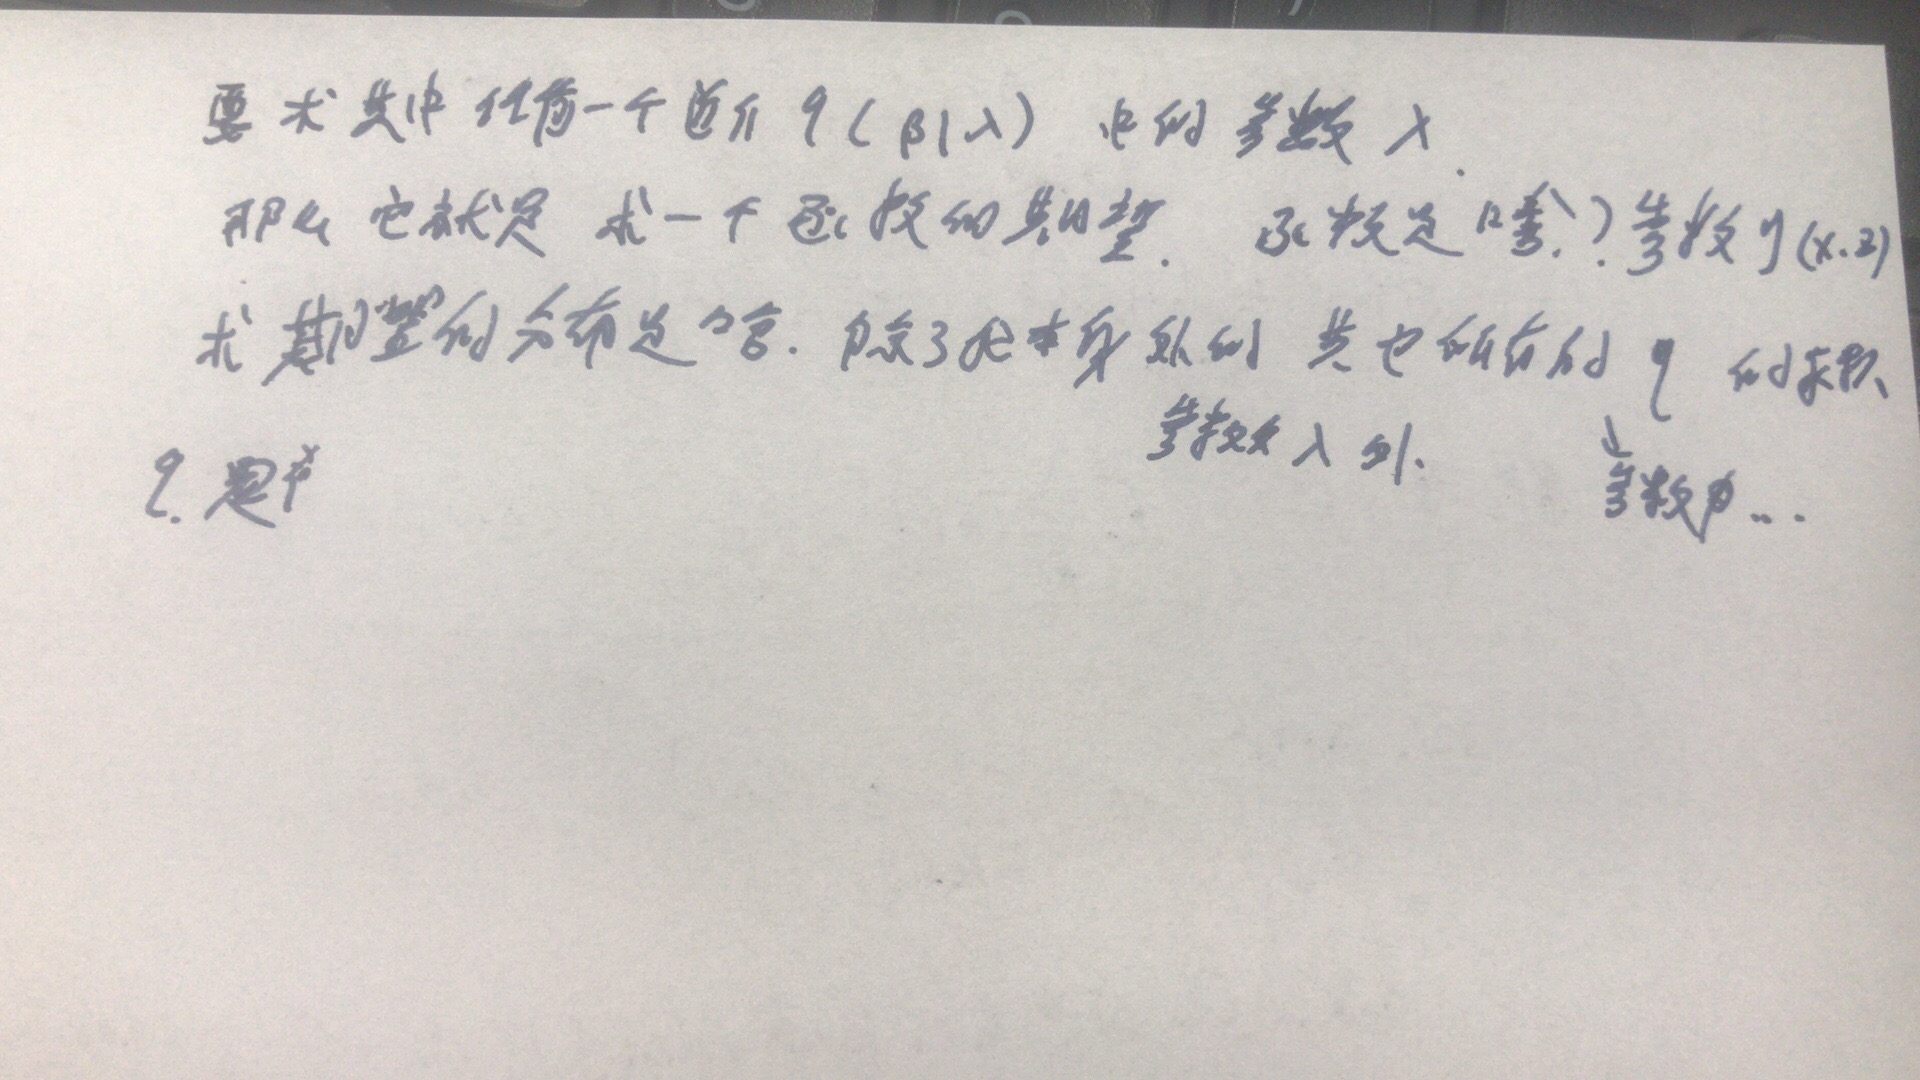 要求其中任何一个近似 q(β|λ) 中的参数 λ.
那么它就是 求一个函数的期望. 函数是啥? 参数 η(x.z)
求期望的分布是啥. 除了它本身外的 其它所有的 q 的乘积
参数 λ 外.
参数φ...
q.